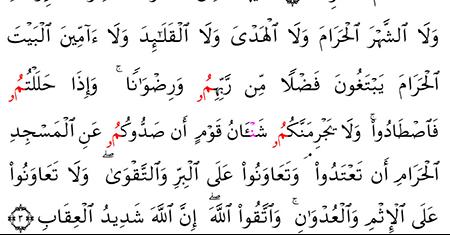 وَلَا ٱلشَّهْرَ ٱلْحَرَامَ وَلَا ٱلْهَدْىَ وَلَا ٱلْقَلَٰٓئِدَ وَلَا ءَآمِّينَ ٱلْبَيْتَ
ٱلْحَرَامَ يَبْتَغُونَ فَضْلًا مِّن رَّبِّهِمُۥ وَرِضْوَٰنًا ۚ وَإِذَا حَلَلْتُمُۥ
فَٱصْطَادُوا۟ ۚ وَلَا يَجْرِمَنَّكُمُۥ شَنْـَٔانُ قَوْمٍ أَن صَدُّوكُمُۥ عَنِ ٱلْمَسْجِدِ
ٱلْحَرَامِ أَن تَعْتَدُوا۟ ۘ وَتَعَاوَنُوا۟ عَلَى ٱلْبِرِّ وَٱلتَّقْوَىٰ ۖ وَلَا تَعَاوَنُوا۟
عَلَى ٱلْإِثْمِ وَٱلْعُدْوَٰنِ ۚ وَٱتَّقُوا۟ ٱللَّهَ ۖ إِنَّ ٱللَّهَ شَدِيدُ ٱلْعِقَابِ